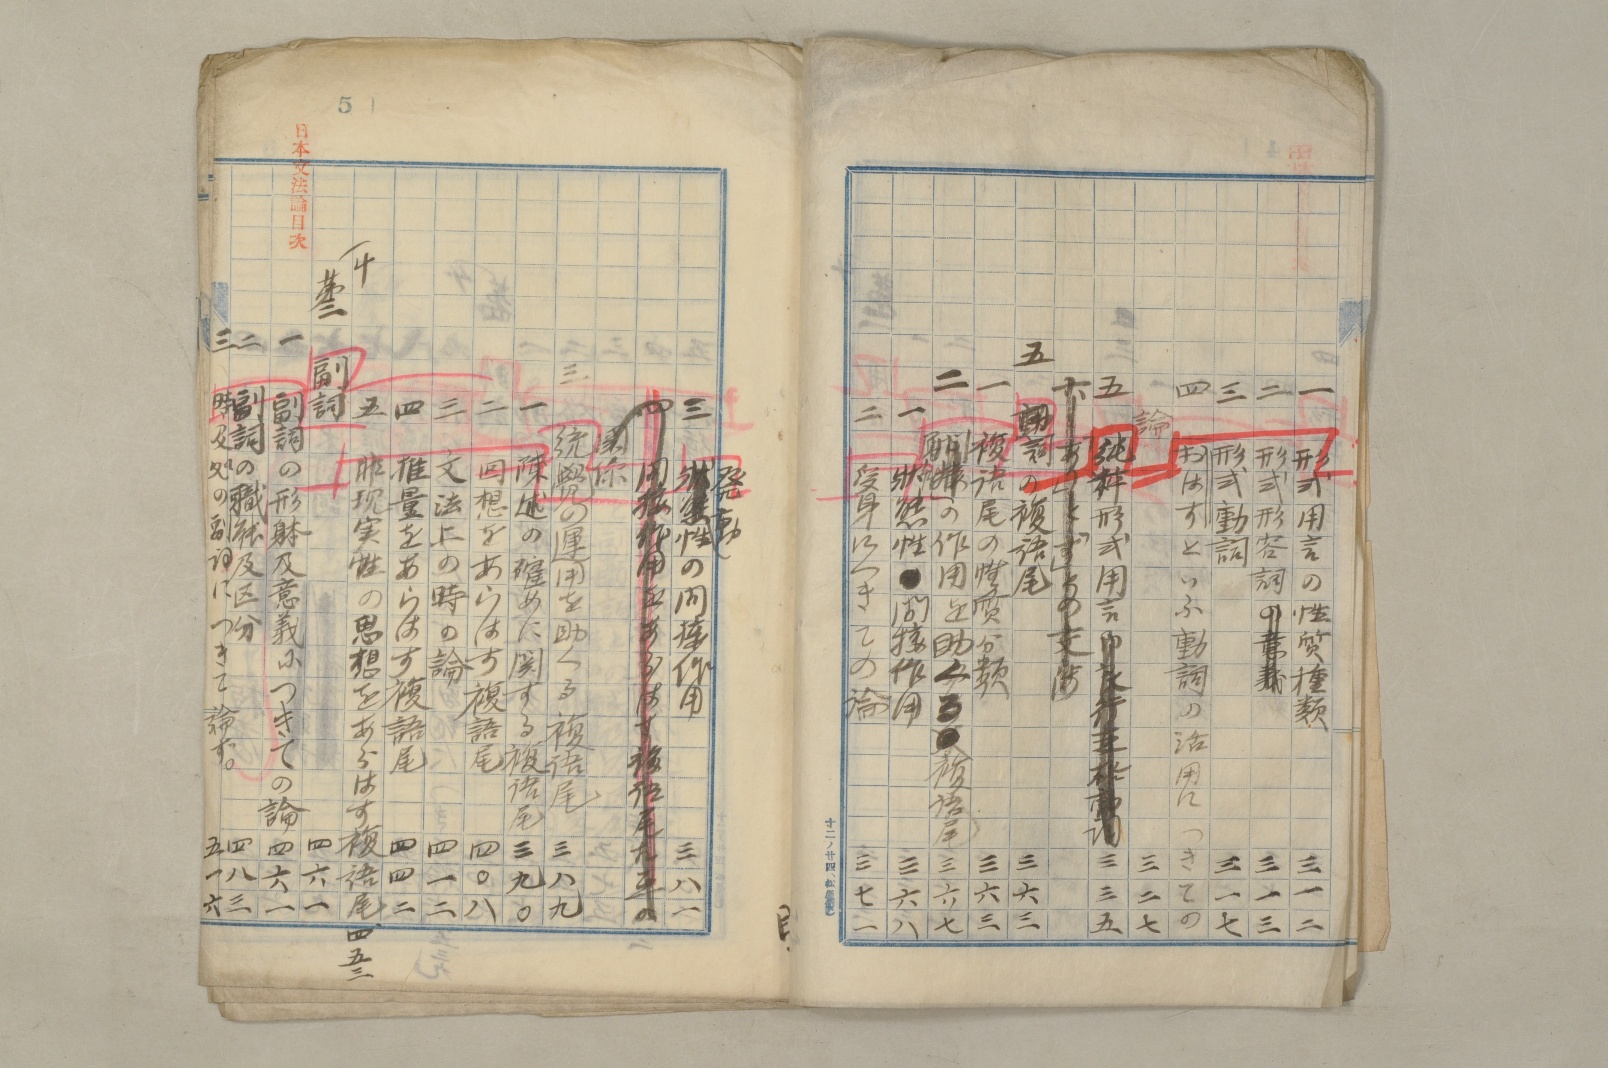 一 形式用言の性質種類 三一二
二 形式形容詞 三一三
三 形式動詞 三一七
四 おはすといふ動詞の活用につきての
論 三二七
五 純粋形式用言 三三五
五
動詞の複語尾 三六三
一 複語尾の性質分類 三六三
二 の作用を助くる複語尾 三六七
一 状態性間接作用 三六八
二 受身につきての論 三七二
三 発動性の間接作用 三八一
三 統覚の運用を助くる複語尾 三八九
一 陳述の確めに関する複語尾 三九〇
二 回想をあらはす複語尾 四〇八
三 文法上の時の論 四一二
四 推量をあらはす複語尾 四四二
五 非現実性の思想をあらはす複語尾 四五三
副詞 四六一
一 副詞の形躰及意義につきての論 四六一
二 副詞の職能及区分 四八三
三 時及処の副詞につきて論ず。 五一六
日本文法論目次
5